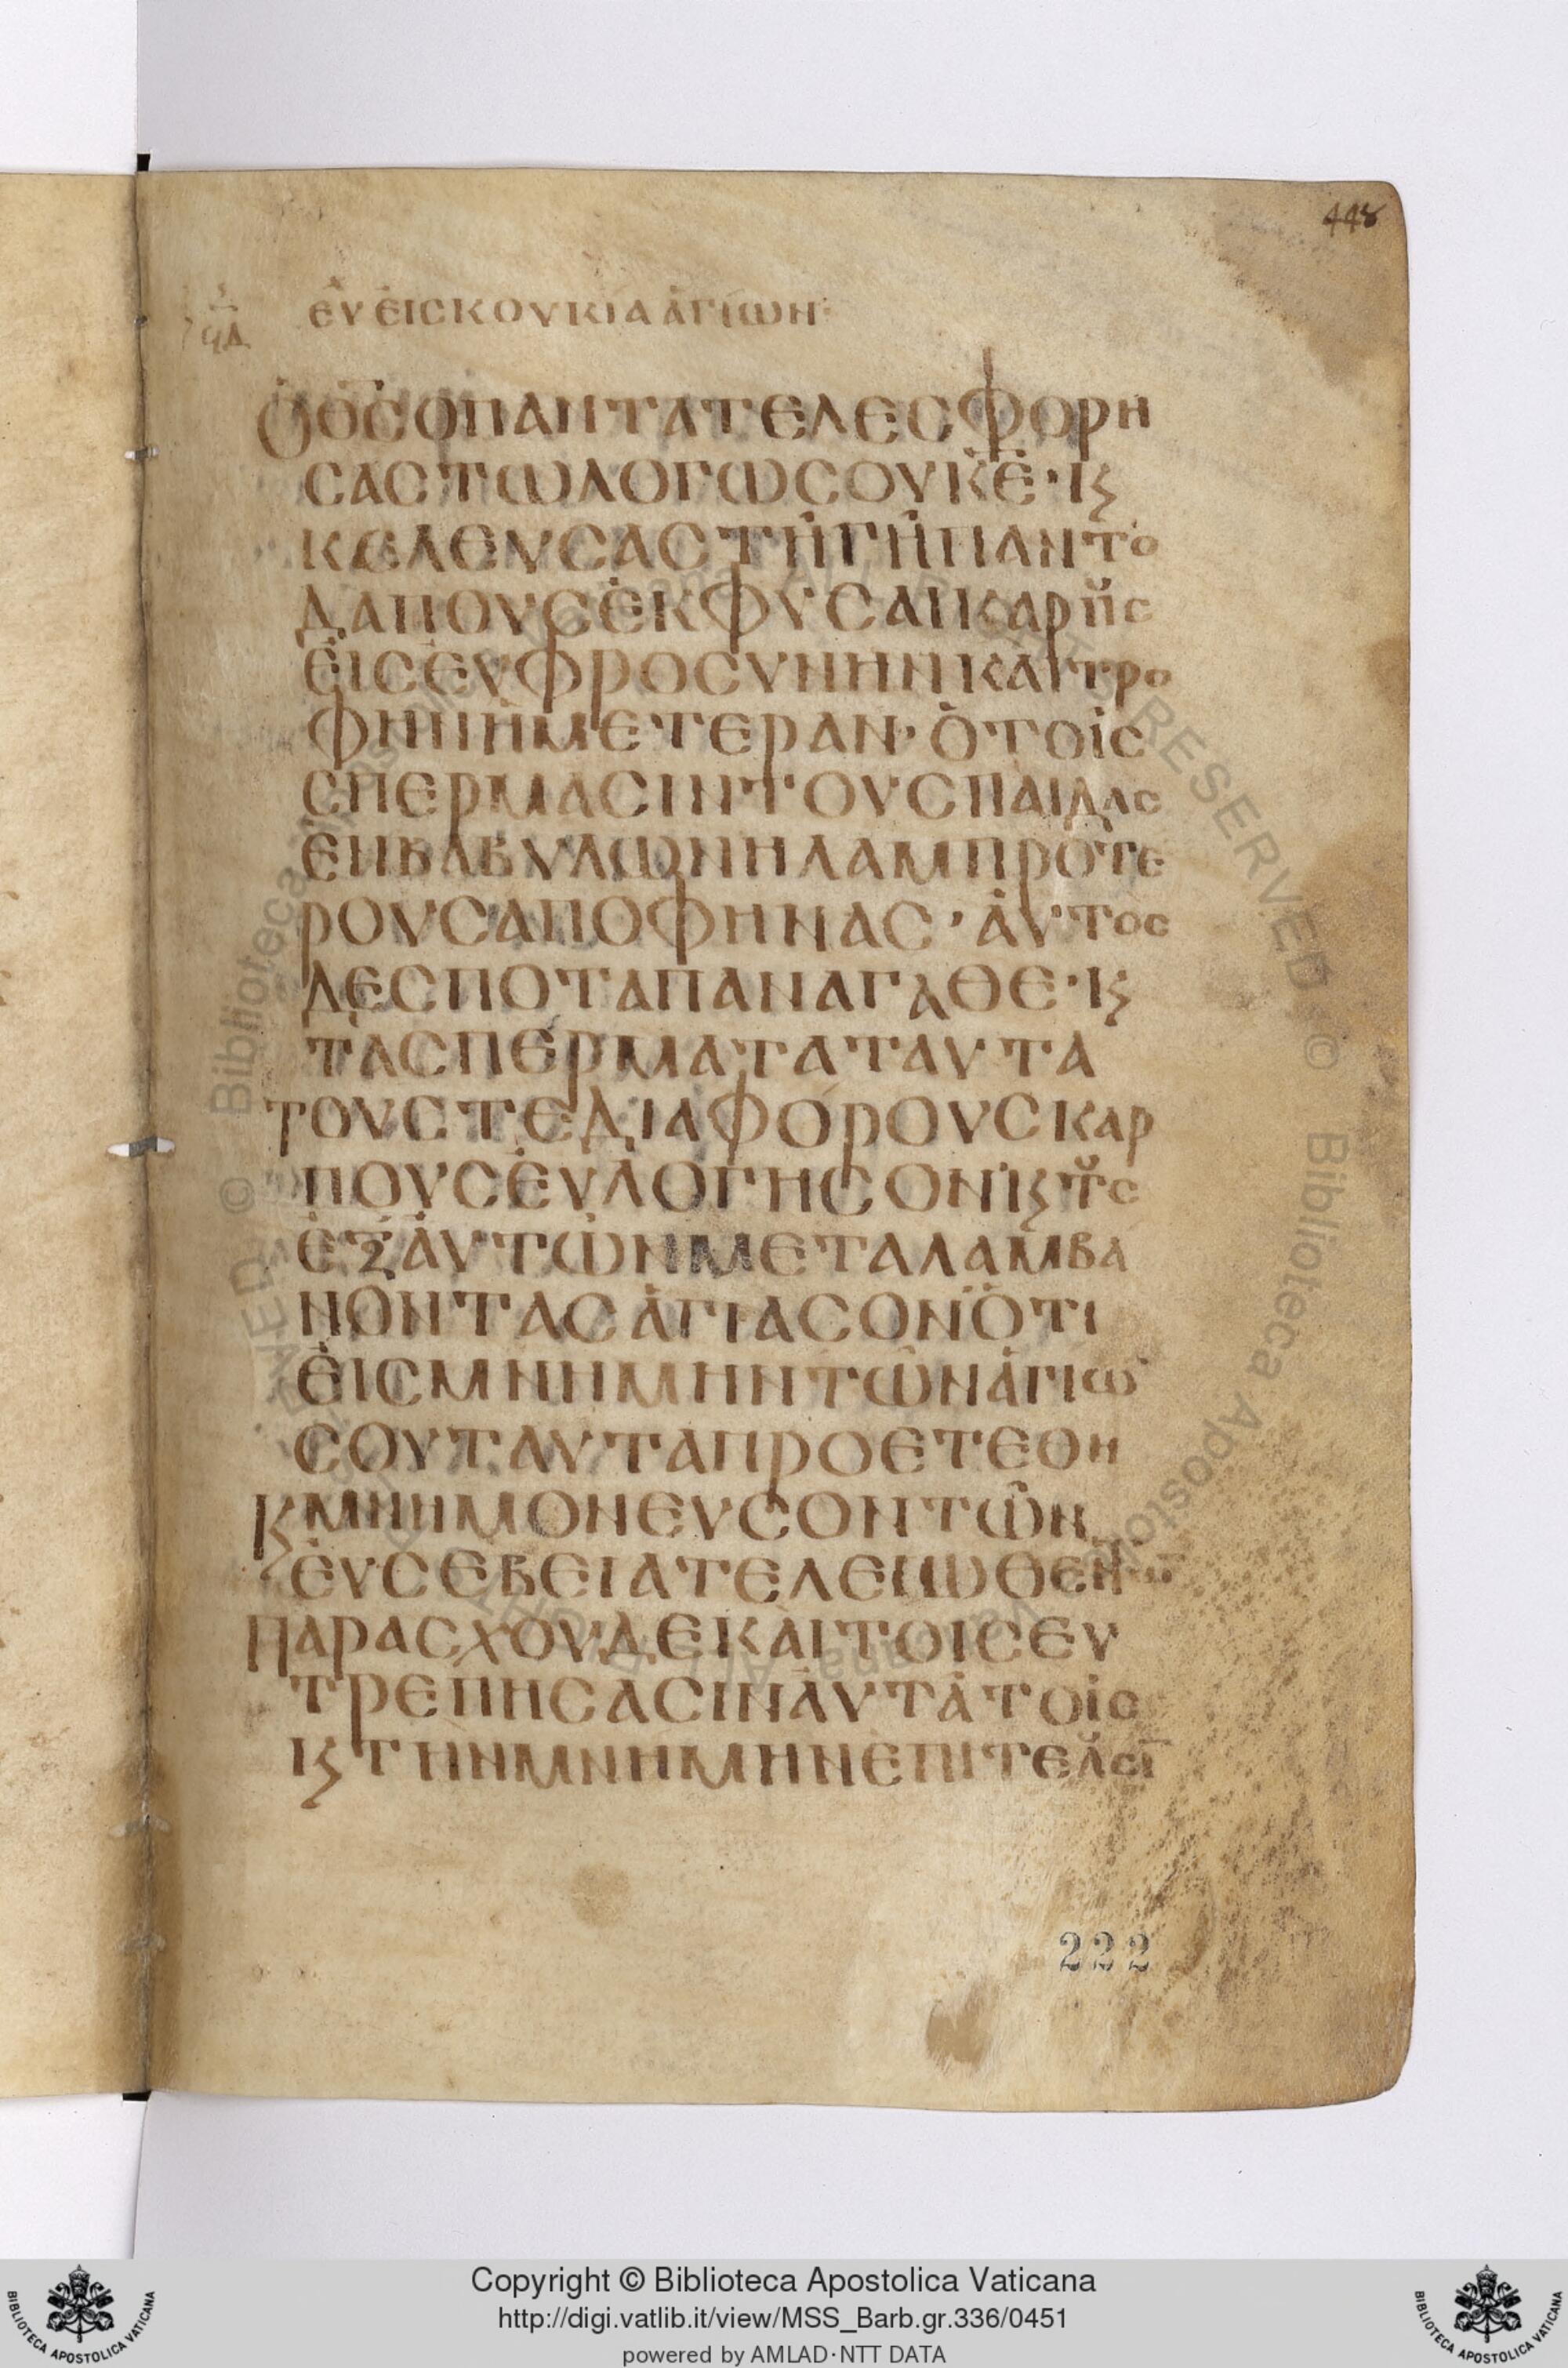 448
ϟΔ
ΕΥ ΕΙΣ ΚΟΥΚΙΑ ΑΓΙΩΝ
Ὁ Θ̅Σ̅ Ο ΠΑΝΤΑ ΤΕΛΕΣΦΟΡΗ
ΣΑΣ ΤΩ ΛΟΓΩ ΣΟΥ Κ̅Ε̅· Ϗ
ΚΕΛΕΥΣΑΣ ΤΗ ΓΗ ΠΑΝΤΟ
ΔΑΠΟΥΣ ΕΚΦΥΣΑΙ ΚΑΡΠȣΣ
ΕΙΣ ΕΥΦΡΟΣΥΝΗΝ ΚΑΙ ΤΡΟ
ΦΗΝ ΗΜΕΤΕΡΑΝ· Ὁ ΤΟΙΣ
ΣΠΕΡΜΑΣΙΝ ΤΟΥΣ ΠΑΙΔΑΣ
ΕΝ ΒΑΒΥΛΩΝΗ ΛΑΜΠΡΟΤΕ
ΡΟΥΣ ΑΠΟΦΗΝΑΣ· ΑΥΤΟΣ
ΔΕΣΠΟΤΑ ΠΑΝΑΓΑΘΕ· Ϗ
ΤΑ ΣΠΕΡΜΑΤΑ ΤΑΥΤΑ
ΤΟΥΣ ΤΕ ΔΙΑΦΟΡΟΥΣ ΚΑΡ
ΠΟΥΣ ΕΥΛΟΓΗΣΟΝ Ϗ ΤȣΣ
ΕΞ ΑΥΤΩΝ ΜΕΤΑΛΑΜΒΑ
ΝΟΝΤΑΣ ΑΓΙΑΣΟΝ ὉΤΙ
ΕΙΣ ΜΝΗΜΗΝ ΤΩΝ ΑΓΙΩ̅
ΣΟΥ ΤΑΥΤΑ ΠΡΟΕΤΕΘΗ
Ϗ ΜΝΗΜΟΝΕΥΣΟΝ ΤΩΝ
ΕΥΣΕΒΕΙΑ ΤΕΛΕΙΩΘΕΝ
ΠΑΡΑΣΧΟΥ ΔΕ ΚΑΙ ΤΟΙΣ ΕΥ
ΤΡΕΠΗΣΑΣΙΝ ΑΥΤΑ ΤΟΙΣ
Ϗ ΤΗΝ ΜΝΗΜΗΝ ΕΠΙΤΕΛȣΣΙ̅
222
Copyright © Biblioteca Apostolica Vaticana
http://digi.vatlib.it/view/MSS_Barb.gr.336/0451
powered by AMLAD·NTT DATA
BIBLIOTECA APOSTOLICA VATICANA
BIBLIOTECA APOSTOLICA VATICANA